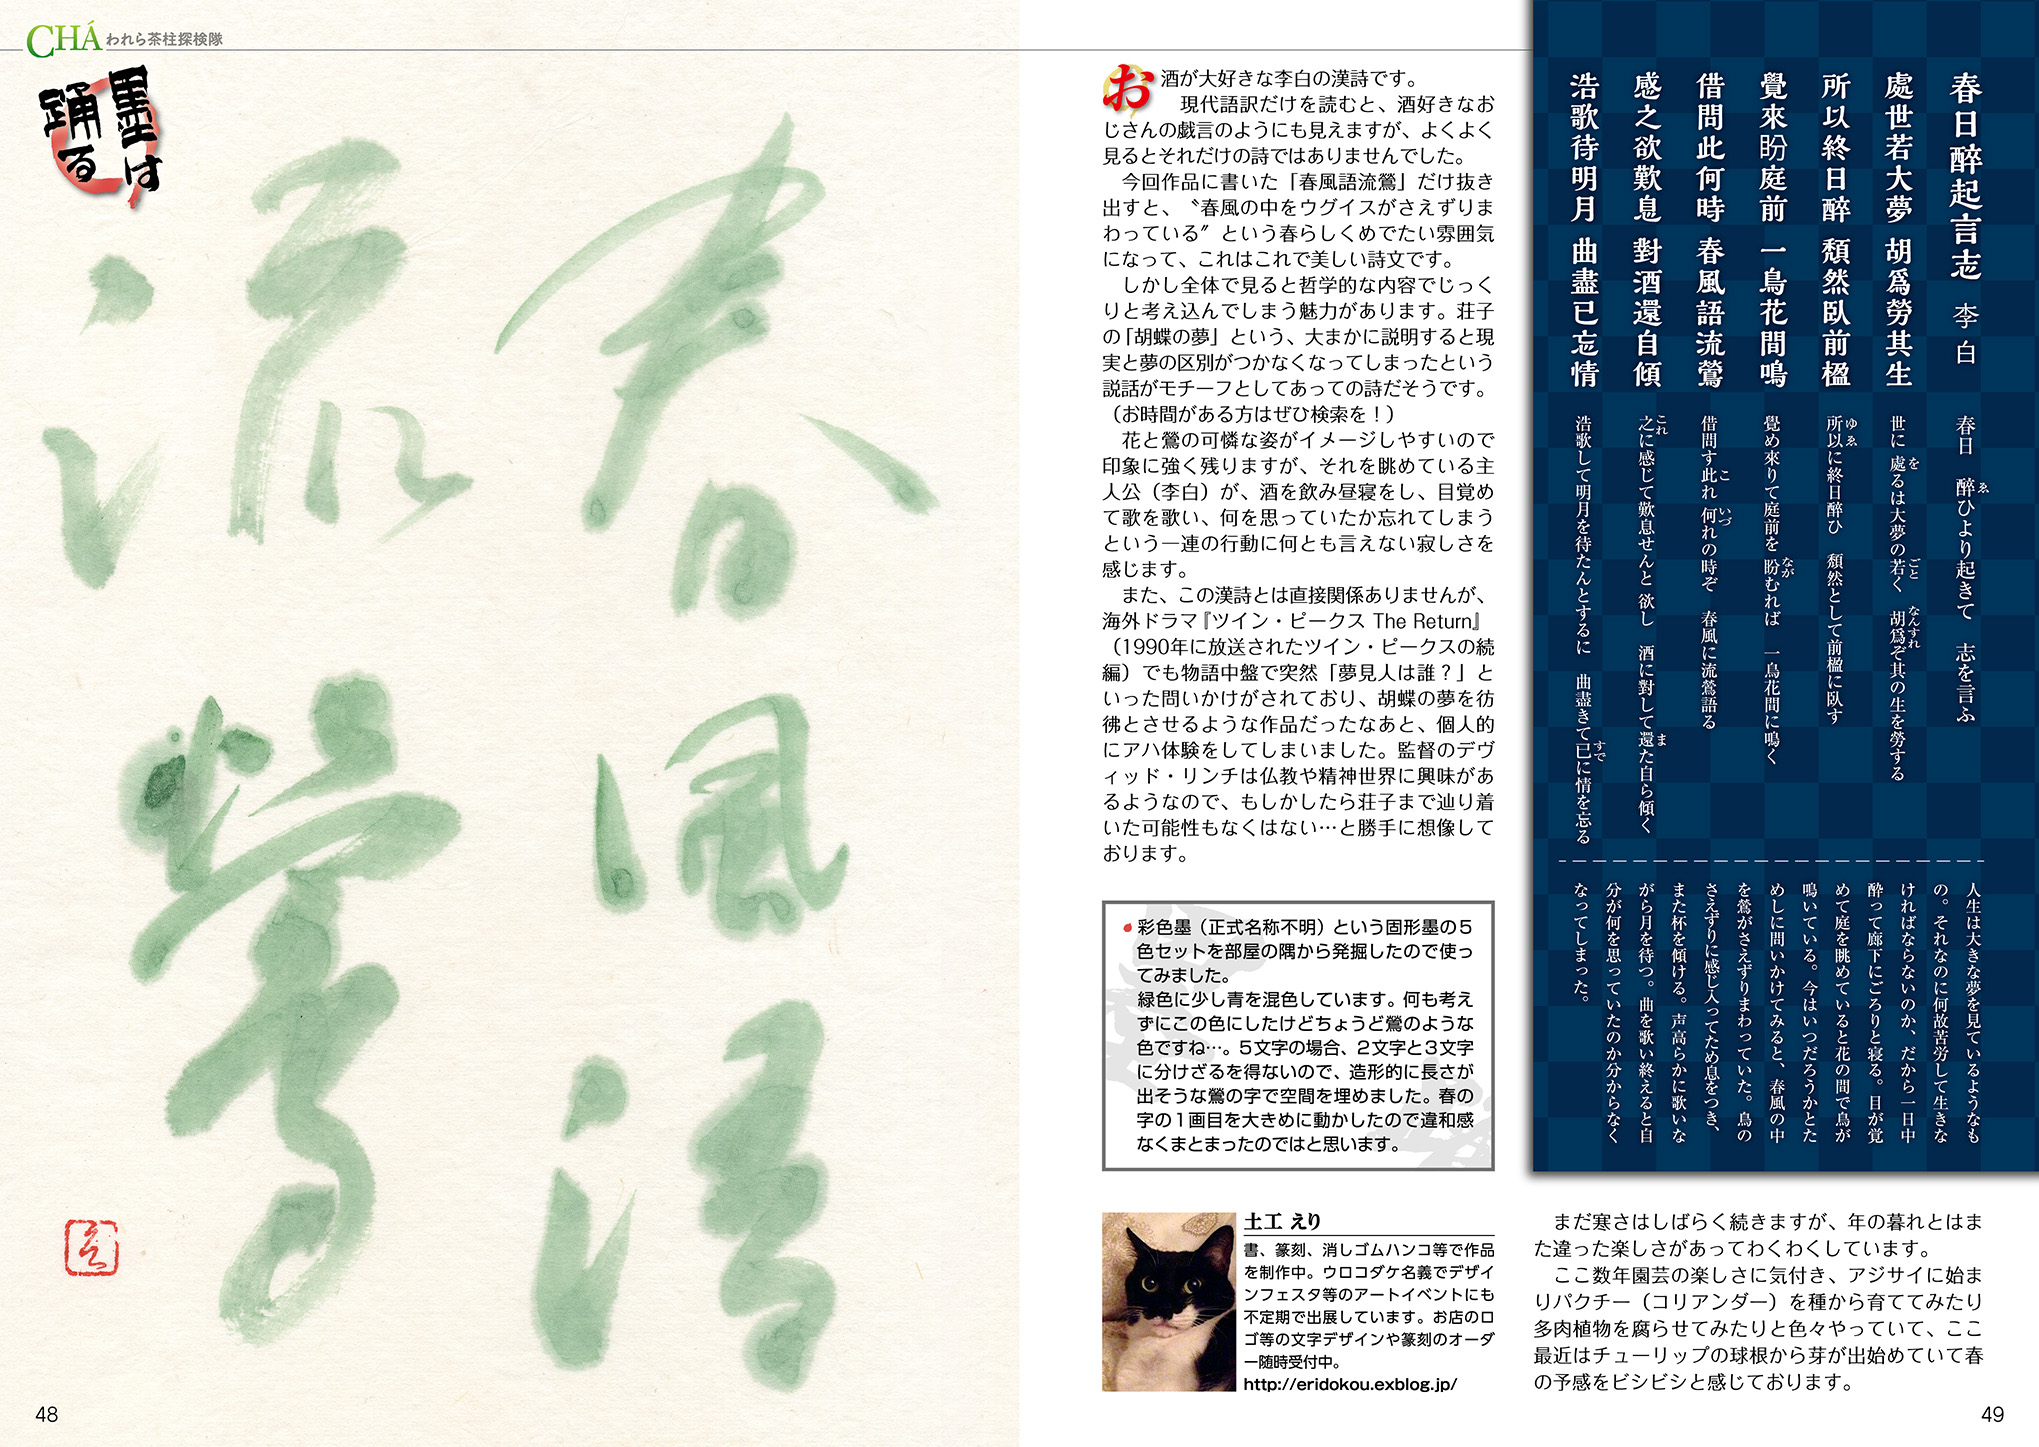 CHÁ われら茶柱探検隊
墨は
踊る
春風語
流鶯
48
春日醉起言志 李白
處世若大夢 胡爲勞其生
所以終日醉 頽然臥前楹
覺來盼庭前 一鳥花間鳴
借問此何時 春風語流鶯
感之欲歎息 對酒還自傾
浩歌待明月 曲盡已忘情
春日 醉ひより起きて 志を言ふ
世に處るは大夢の若く 胡爲ぞ其の生を勞する
所以に終日醉ひ 頽然として前楹に臥す
覺め來りて庭前を盼むれば 一鳥花間に鳴く
借問す此れ何れの時ぞ 春風に流鶯語る
之に感じて歎息せんと欲し 酒に對して還た自ら傾く
浩歌して明月を待たんとするに 曲盡きて已に情を忘る
人生は大きな夢を見ているようなも
の。それなのに何故苦労して生きな
ければならないのか、だから一日中
酔って廊下にごろりと寝る。目が覚
めて庭を眺めていると花の間で鳥が
鳴いている。今はいつだろうかとた
めしに問いかけてみると、春風の中
を鶯がさえずりまわっていた。鳥の
さえずりに感じ入ってため息をつき、
また杯を傾ける。声高らかに歌いな
がら月を待つ。曲を歌い終えると自
分が何を思っていたのか分からなく
なってしまった。
お酒が大好きな李白の漢詩です。
現代語訳だけを読むと、酒好きなお
じさんの戯言のようにも見えますが、よくよく
見るとそれだけの詩ではありませんでした。
今回作品に書いた「春風語流鶯」だけ抜き
出すと、〝春風の中をウグイスがさえずりま
わっている〟という春らしくめでたい雰囲気
になって、これはこれで美しい詩文です。
しかし全体で見ると哲学的な内容でじっく
りと考え込んでしまう魅力があります。荘子
の「胡蝶の夢」という、大まかに説明すると現
実と夢の区別がつかなくなってしまったという
説話がモチーフとしてあっての詩だそうです。
（お時間がある方はぜひ検索を！）
花と鶯の可憐な姿がイメージしやすいので
印象に強く残りますが、それを眺めている主
人公（李白）が、酒を飲み昼寝をし、目覚め
て歌を歌い、何を思っていたか忘れてしまう
という一連の行動に何とも言えない寂しさを
感じます。
また、この漢詩とは直接関係ありませんが、
海外ドラマ『ツイン・ピークス The Return』
（1990年に放送されたツイン・ピークスの続
編）でも物語中盤で突然「夢見人は誰？」と
いった問いかけがされており、胡蝶の夢を彷
彿とさせるような作品だったなあと、個人的
にアハ体験をしてしまいました。監督のデヴ
ィッド・リンチは仏教や精神世界に興味があ
るようなので、もしかしたら荘子まで辿り着
いた可能性もなくはない…と勝手に想像して
おります。
彩色墨（正式名称不明）という固形墨の５
色セットを部屋の隅から発掘したので使っ
てみました。
緑色に少し青を混色しています。何も考え
ずにこの色にしたけどちょうど鶯のような
色ですね…。５文字の場合、２文字と３文字
に分けざるを得ないので、造形的に長さが
出そうな鶯の字で空間を埋めました。春の
字の１画目を大きめに動かしたので違和感
なくまとまったのではと思います。
土工 えり
書、篆刻、消しゴムハンコ等で作品
を制作中。ウロコダケ名義でデザイ
ンフェスタ等のアートイベントにも
不定期で出展しています。お店のロ
ゴ等の文字デザインや篆刻のオーダ
ー随時受付中。
http://eridokou.exblog.jp/
まだ寒さはしばらく続きますが、年の暮れとはま
た違った楽しさがあってわくわくしています。
ここ数年園芸の楽しさに気付き、アジサイに始ま
りパクチー（コリアンダー）を種から育ててみたり
多肉植物を腐らせてみたりと色々やっていて、ここ
最近はチューリップの球根から芽が出始めていて春
の予感をビシビシと感じております。
49